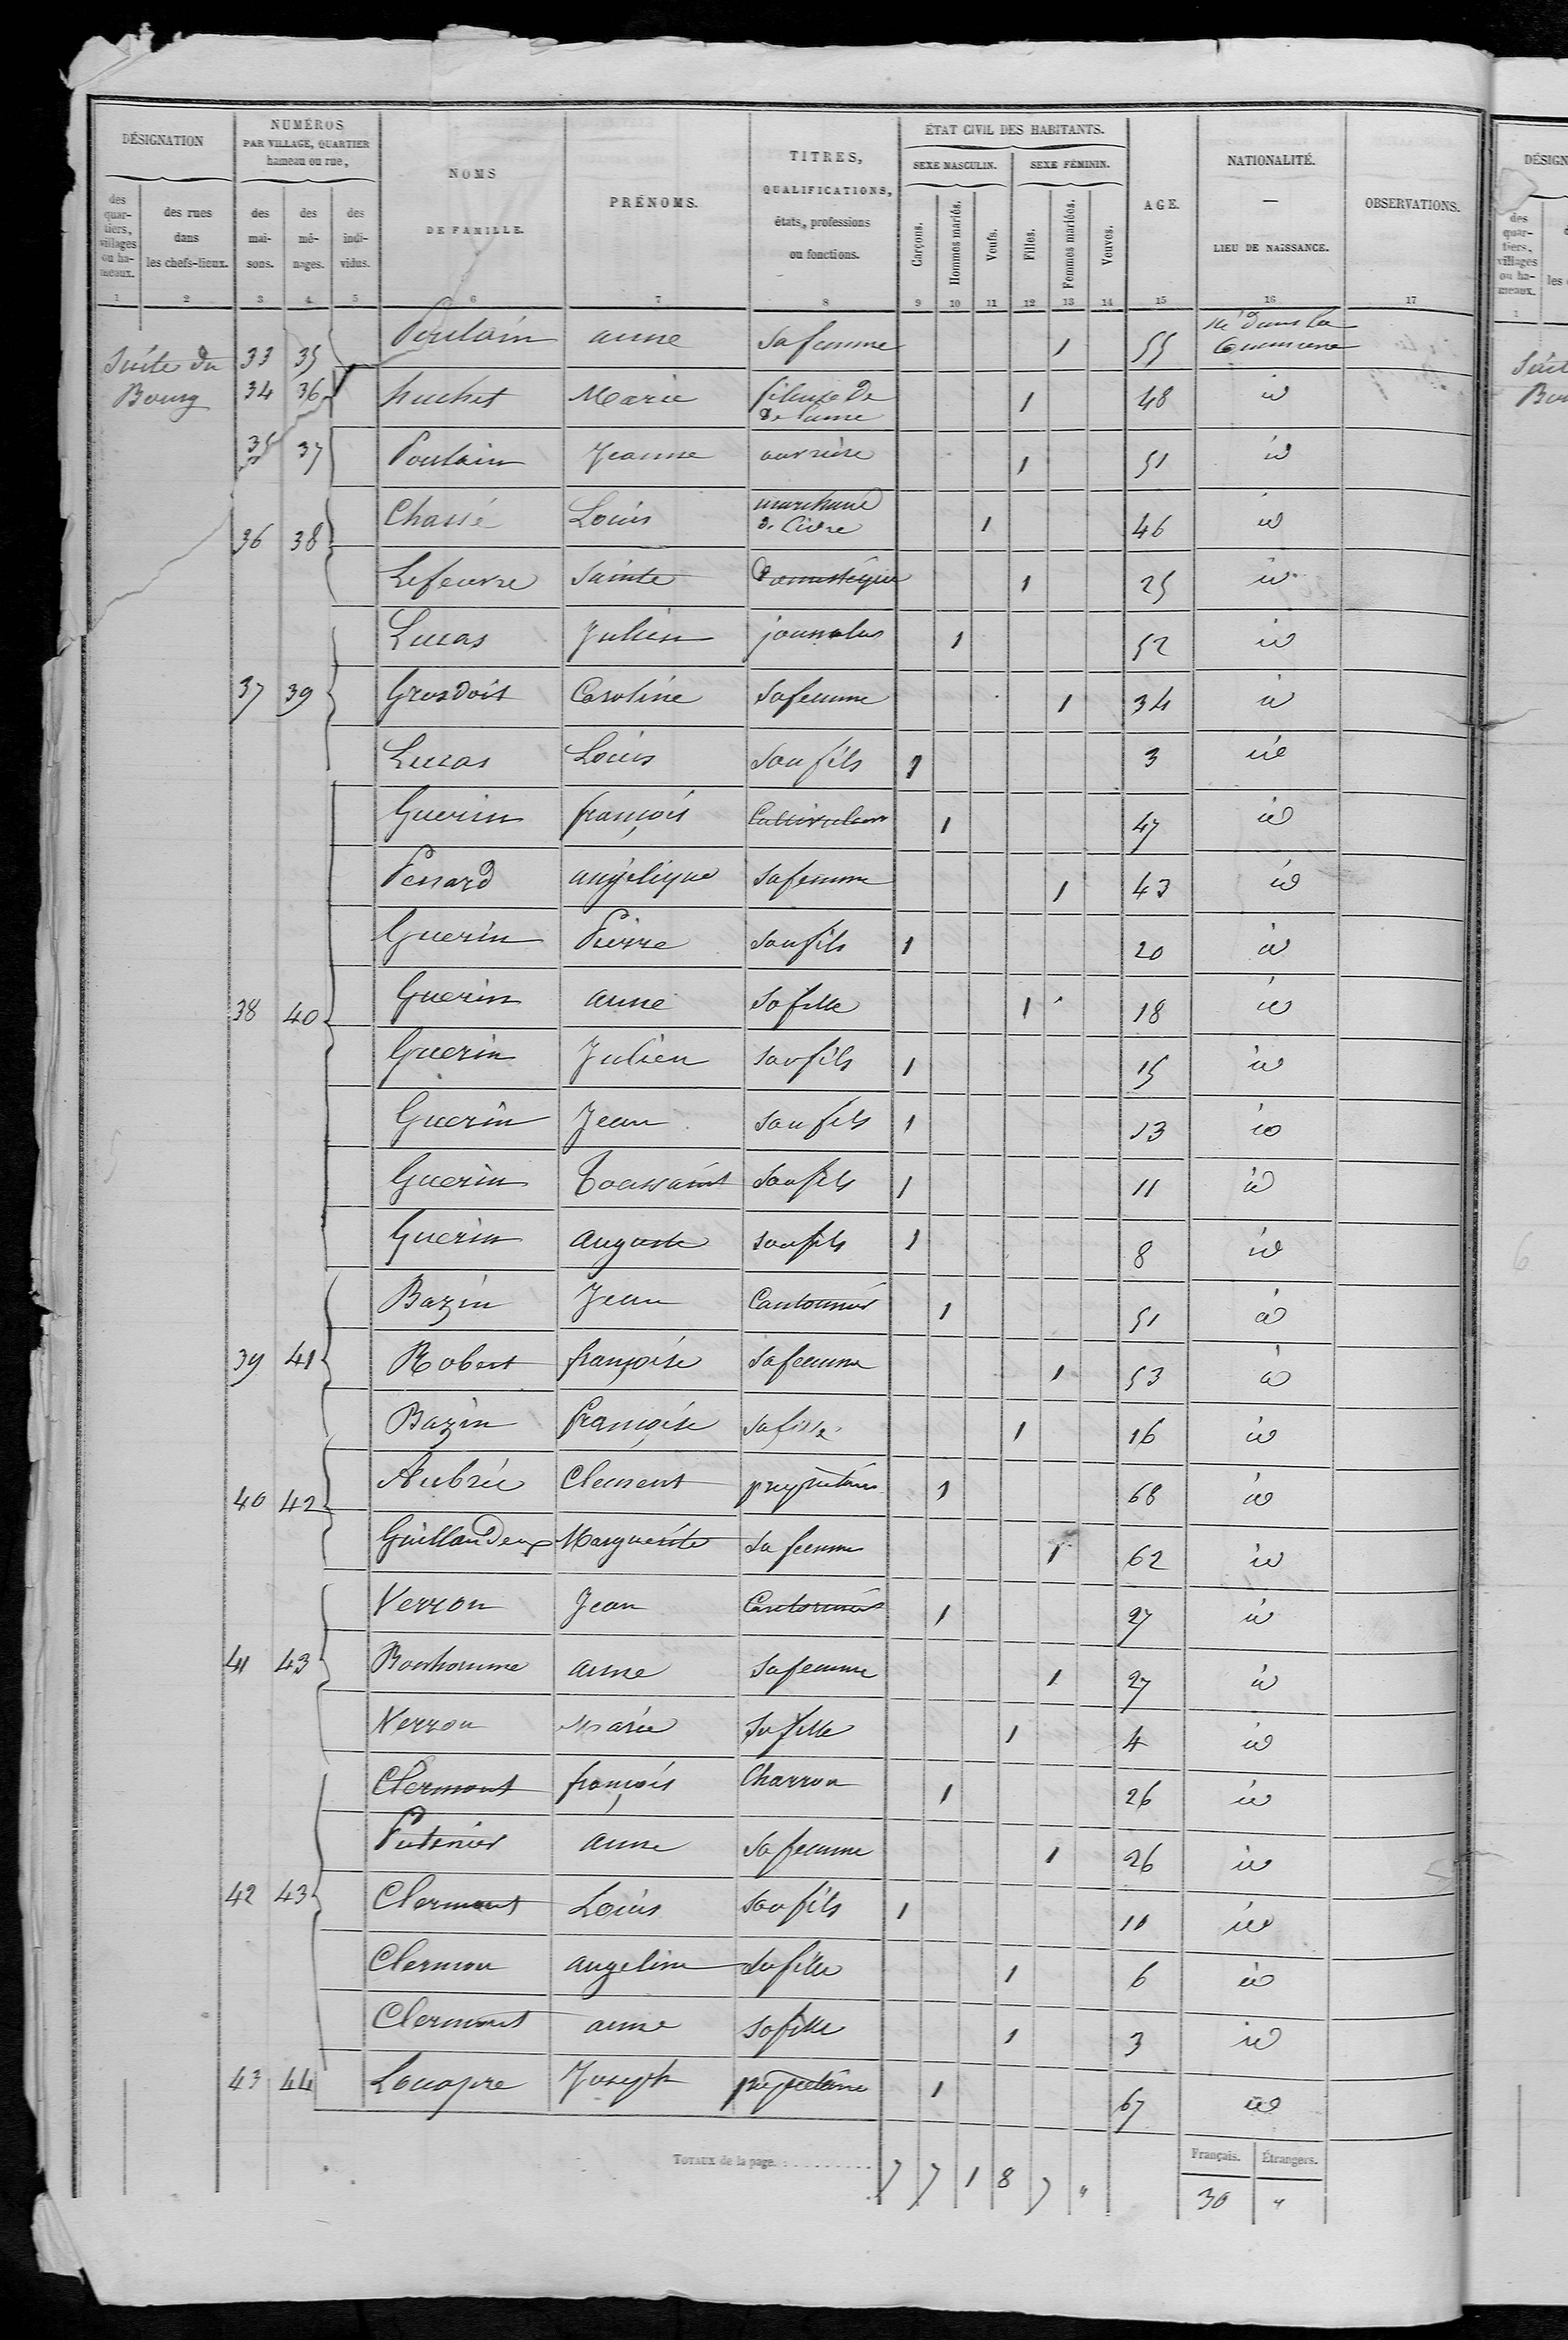 DÉSIGNATION
NUMÉROS
PAR VILLAGE, QUARTIER
hameau ou rue,
des quartiers, villages ou hameaux.
des rues dans les chefs-lieux.
des maisons.
des ménages.
des individus.
NOMS
DE FAMILLE.
PRÉNOMS.
TITRES,
QUALIFICATIONS,
états, professions
ou fonctions.
ÉTAT CIVIL DES HABITANTS.
SEXE MASCULIN.
SEXE FÉMININ.
Garçons.
Hommes mariés.
Veufs.
Filles.
Femmes mariées.
Veuves.
AGE.
NATIONALITÉ.
—
LIEU DE NAISSANCE.
OBSERVATIONS.
1 2 3 4 5 6 7 8 9 10 11 12 13 14 15 16 17
Suite du Bourg
33 35 Poulain anne sa femme 1 55 né dans la Commune
34 36 huchet Marie fileuse de de laine 1 48 id
35 37 Poulain Jeanne ouvrière 1 51 id
36 38 Chassé Louis marchand de Cidre 1 46 id
Lefeuvre Sainte Domestique 1 25 id
Lucas Julien journalier 1 52 id
37 39 Grosdoit Caroline Sa femme 1 34 id
Lucas Louis Son fils 1 3 id
Guerin françois Cultivateur 1 47 id
Penard angélique sa femme 1 43 id
Guerin Pierre son fils 1 20 id
38 40 Guerin anne Sa fille 1 18 id
Guerin Julien son fils 1 15 id
Guerin Jean son fils 1 13 id
Guerin Toussaint Son fils 1 11 id
Guerin auguste son fils 1 8 id
Bazin Jean Cantonnier 1 51 id
39 41 Robert françoise Sa femme 1 53 id
Bazin françoise sa fille 1 16 id
40 42 Aubrée Clement propriétaire 1 68 id
Guillaudeux Marguerite Sa femme 1 62 id
Verron Jean Cantonnier 1 27 id
41 43 Bonhomme anne Sa femme 1 27 id
Verron Marie Sa fille 1 4 id
Clermont françois Charron 1 26 id
Putenier anne Sa femme 1 26 id
42 43 Clermont Louis Son fils 1 10 id
Clermon angeline sa fille 1 6 id
Clermont anne sa fille 1 3 id
43 44 Louapre Joseph propriétaire 1 67 id
TOTAUX de la page........... 7 7 1 8 7 "
Français. Étrangers.
30 "